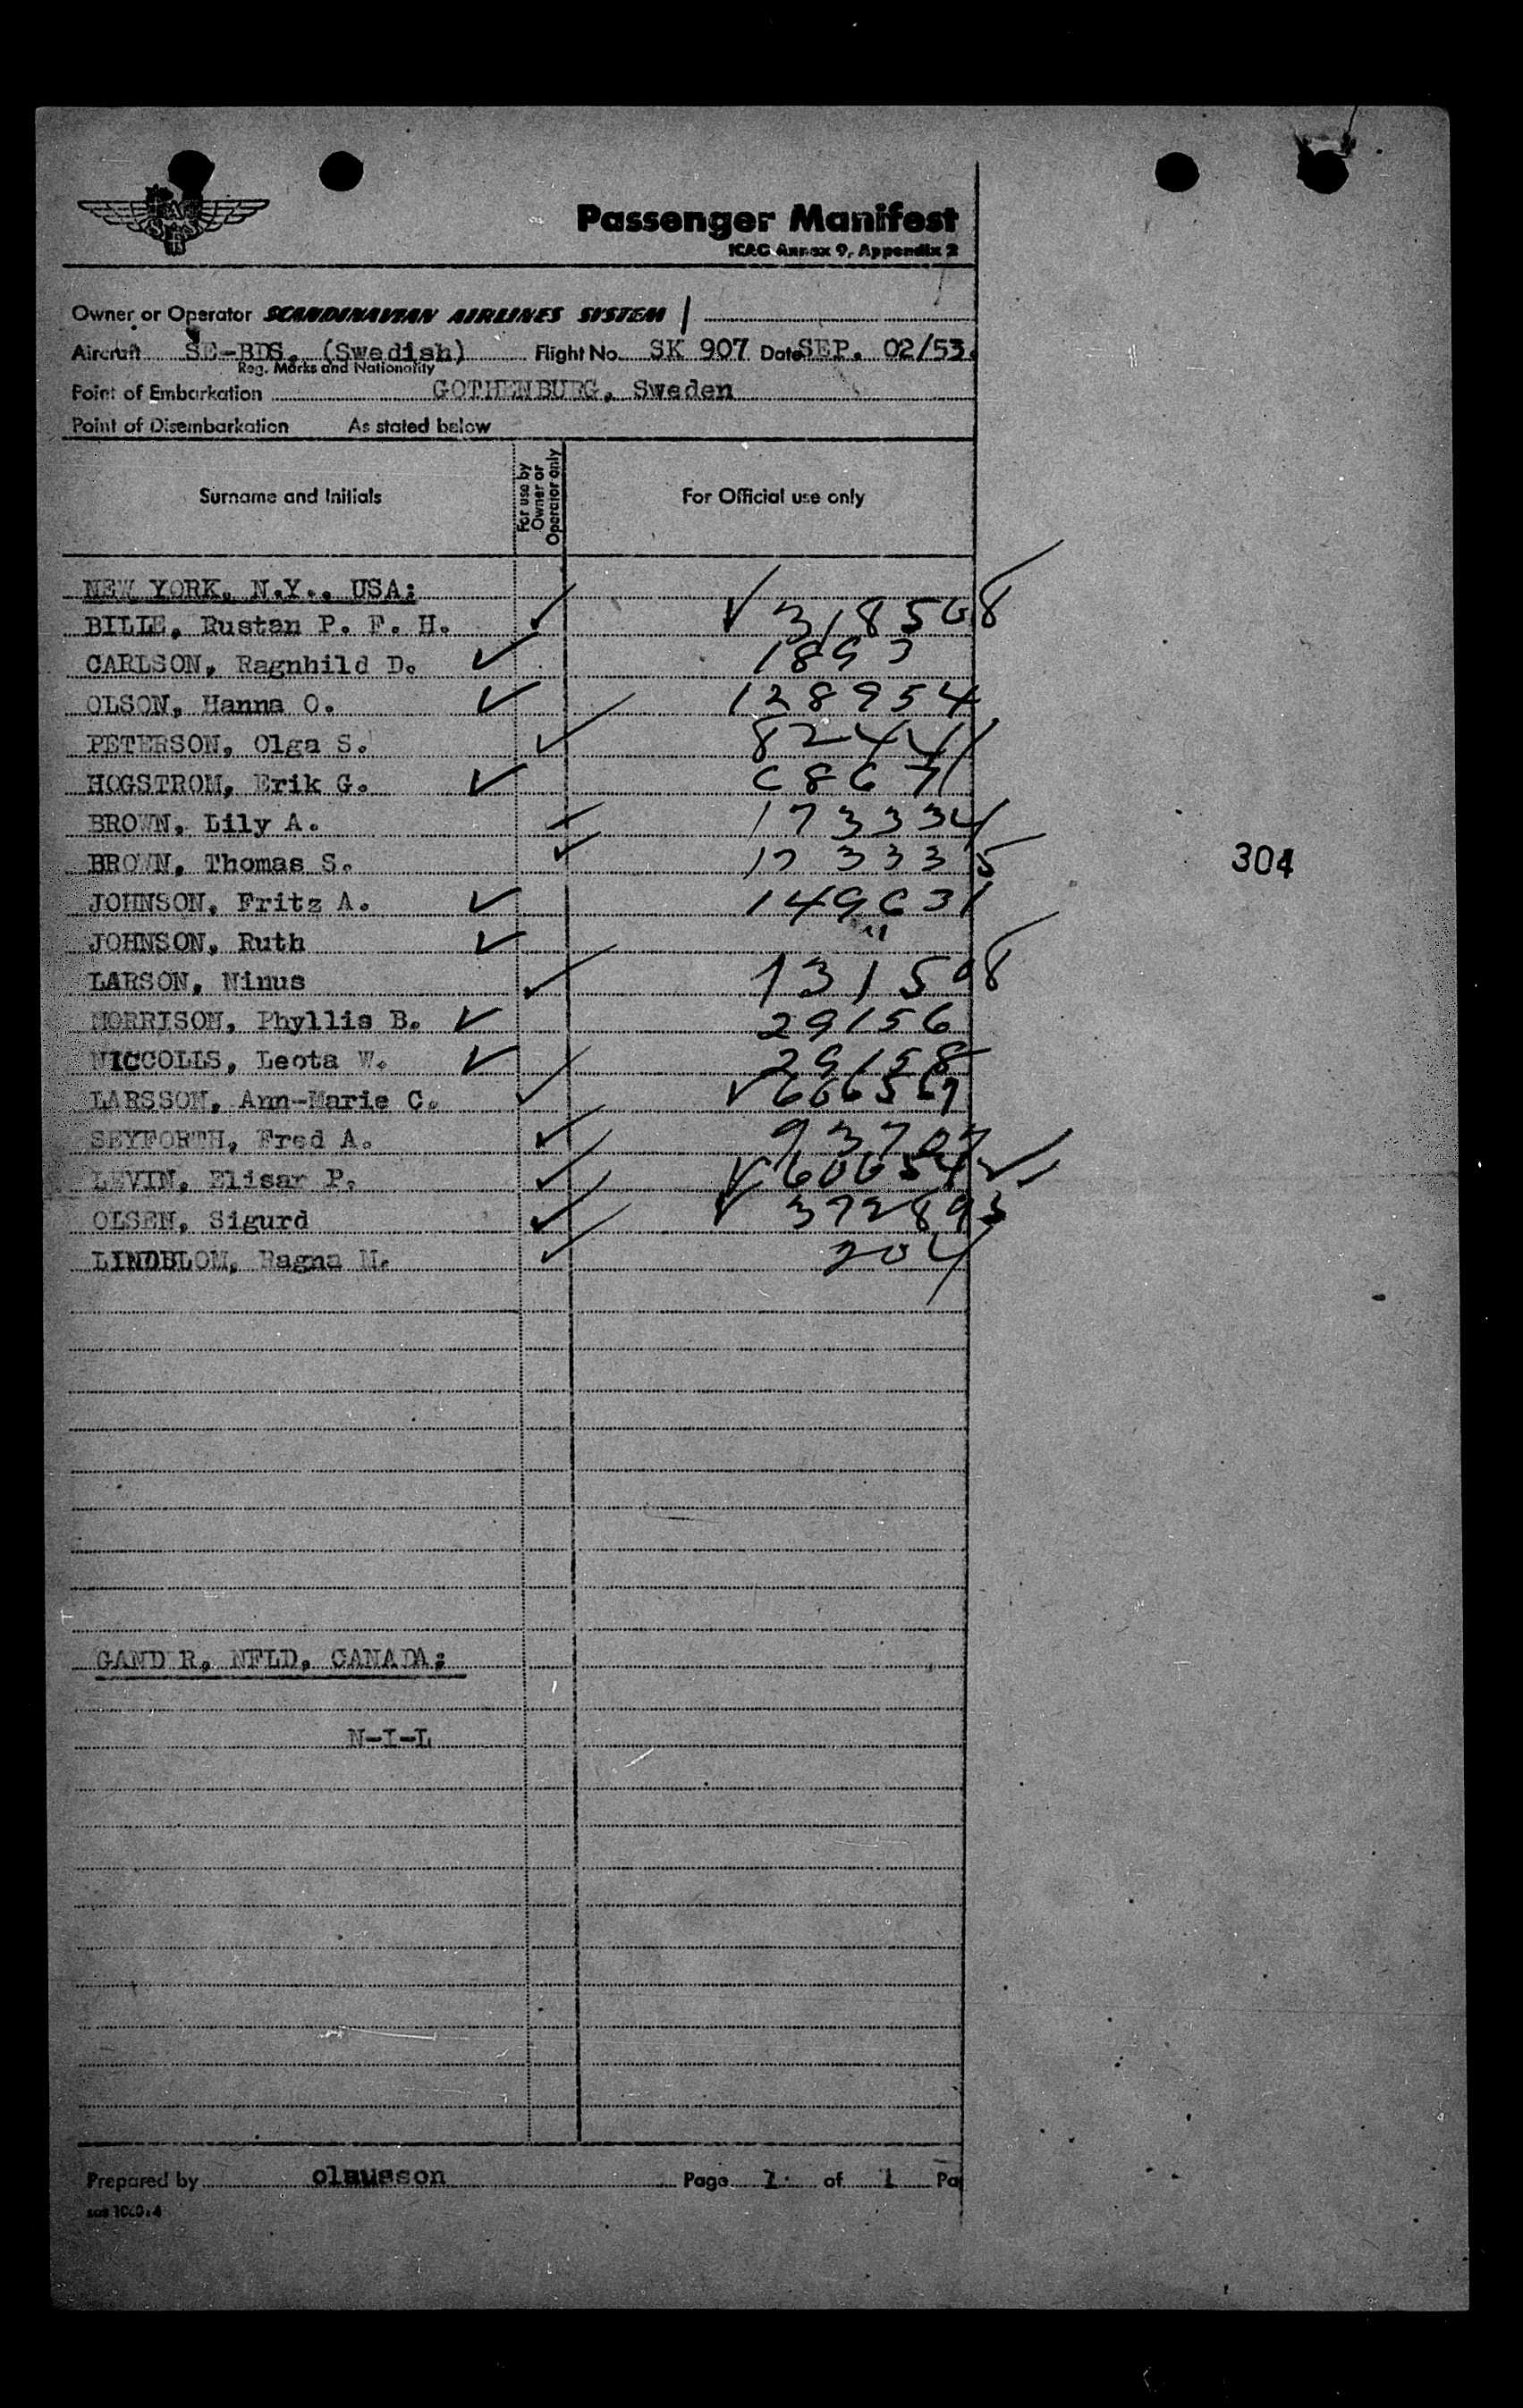 Passenger Manifest
ICAO Annex 9, Appendix 2
Owner or Operator SCANDINAVIAN AIRLINES SYSTEM
Aircraft SE-BDS. (Swedish) Flight No. SK 907 Date SEP. 02/53.
Reg. Marks and Nationality
Point of Embarkation GOTHENBURG, Sweden
Point of Disembarkation As stated below
Surname and Initials For use by Owner or Operator only For Official use only
NEW YORK, N.Y., USA:
BILLE, Rustan P. F. H. ✓ ✓ 318508
CARLSON, Ragnhild D. ✓ 1893
OLSON, Hanna O. ✓ 128954
PETERSON, Olga S. ✓ 82441
HOGSTROM, Erik G. ✓
BROWN, Lily A. ✓ 173334
BROWN, Thomas S. ✓ 173335
304
JOHNSON, Fritz A. ✓ 149631
JOHNSON, Ruth ✓ "
LARSON, Ninus ✓ 131508
MORRISON, Phyllis B. ✓ 29156
NICCOLLS, Leota W. ✓ 29158
LARSSON, Ann-Marie C. ✓ ✓ 666569
SEYFORTH, Fred A. ✓ 93707
LEVIN, Elisar P. ✓ ✓
OLSEN, Sigurd ✓ ✓ 372893
LINDBLOM, Ragna M. ✓ 204
GAND R, NFLD, CANADA:
N-I-L
Prepared by olausson Page 1. of 1 Pa